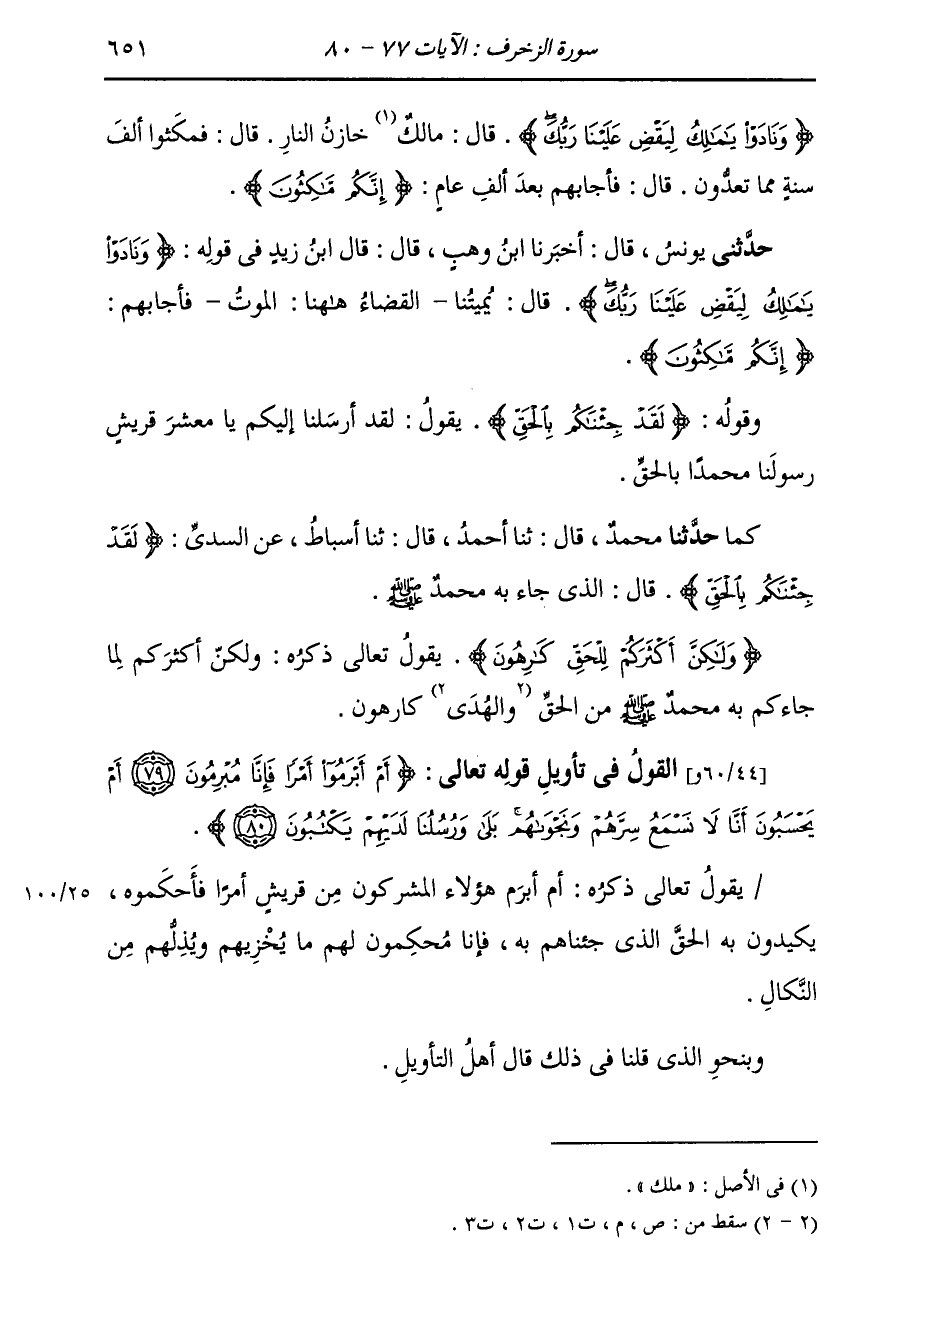 سورة الزخرف : الآيات ٧٧ - ٨٠ ٦٥١
﴿ وَنَادَوْا۟ يَـٰمَـٰلِكُ لِيَقْضِ عَلَيْنَا رَبُّكَۖ ﴾ . قال : مالكٌ(١) خازنُ النارِ . قال : فمكَثوا ألفَ
سنةٍ مما تعدُّون . قال : فأجابهم بعدَ ألفِ عامٍ : ﴿ إِنَّكُم مَّـٰكِثُونَ ﴾ .
حدَّثنى يونسُ ، قال : أخبَرنا ابنُ وهبٍ ، قال : قال ابنُ زيدٍ فى قولِه : ﴿ وَنَادَوْا۟
يَـٰمَـٰلِكُ لِيَقْضِ عَلَيْنَا رَبُّكَۖ ﴾ . قال : يُميتُنا - القضاءُ هٰهنا : الموتُ - فأجابهم :
﴿ إِنَّكُم مَّـٰكِثُونَ ﴾ .
وقولُه : ﴿ لَقَدْ جِئْنَـٰكُم بِٱلْحَقِّ ﴾ . يقولُ : لقد أرسَلنا إليكم يا معشرَ قريشٍ
رسولَنا محمدًا بالحقِّ .
كما حدَّثنا محمدٌ ، قال : ثنا أحمدُ ، قال : ثنا أسباطُ ، عن السدىِّ : ﴿ لَقَدْ
جِئْنَـٰكُم بِٱلْحَقِّ ﴾ . قال : الذى جاء به محمدٌ ﷺ .
﴿ وَلَـٰكِنَّ أَكْثَرَكُمْ لِلْحَقِّ كَـٰرِهُونَ ﴾ . يقولُ تعالى ذكرُه : ولكنّ أكثرَكم لِما
جاءكم به محمدٌ ﷺ من الحقِّ (٢والهُدَى٢) كارهون .
[٦٠/٤٤و] القولُ فى تأويلِ قولِه تعالى : ﴿ أَمْ أَبْرَمُوٓا۟ أَمْرًا فَإِنَّا مُبْرِمُونَ ﴿٧٩﴾ أَمْ
يَحْسَبُونَ أَنَّا لَا نَسْمَعُ سِرَّهُمْ وَنَجْوَىٰهُمۚ بَلَىٰ وَرُسُلُنَا لَدَيْهِمْ يَكْتُبُونَ ﴿٨٠﴾ ﴾ .
/ يقولُ تعالى ذكرُه : أم أبرَم هؤلاء المشركون مِن قريشٍ أمرًا فأَحكَموه ، ١٠٠/٢٥
يكيدون به الحقَّ الذى جئناهم به ، فإنا مُحكِمون لهم ما يُخْزِيهم ويُذِلُّهم مِن
النَّكالِ .
وبنحوِ الذى قلنا فى ذلك قال أهلُ التأويلِ .
(١) فى الأصل : « ملك » .
(٢ - ٢) سقط من : ص ، م ، ت١ ، ت٢ ، ت٣ .